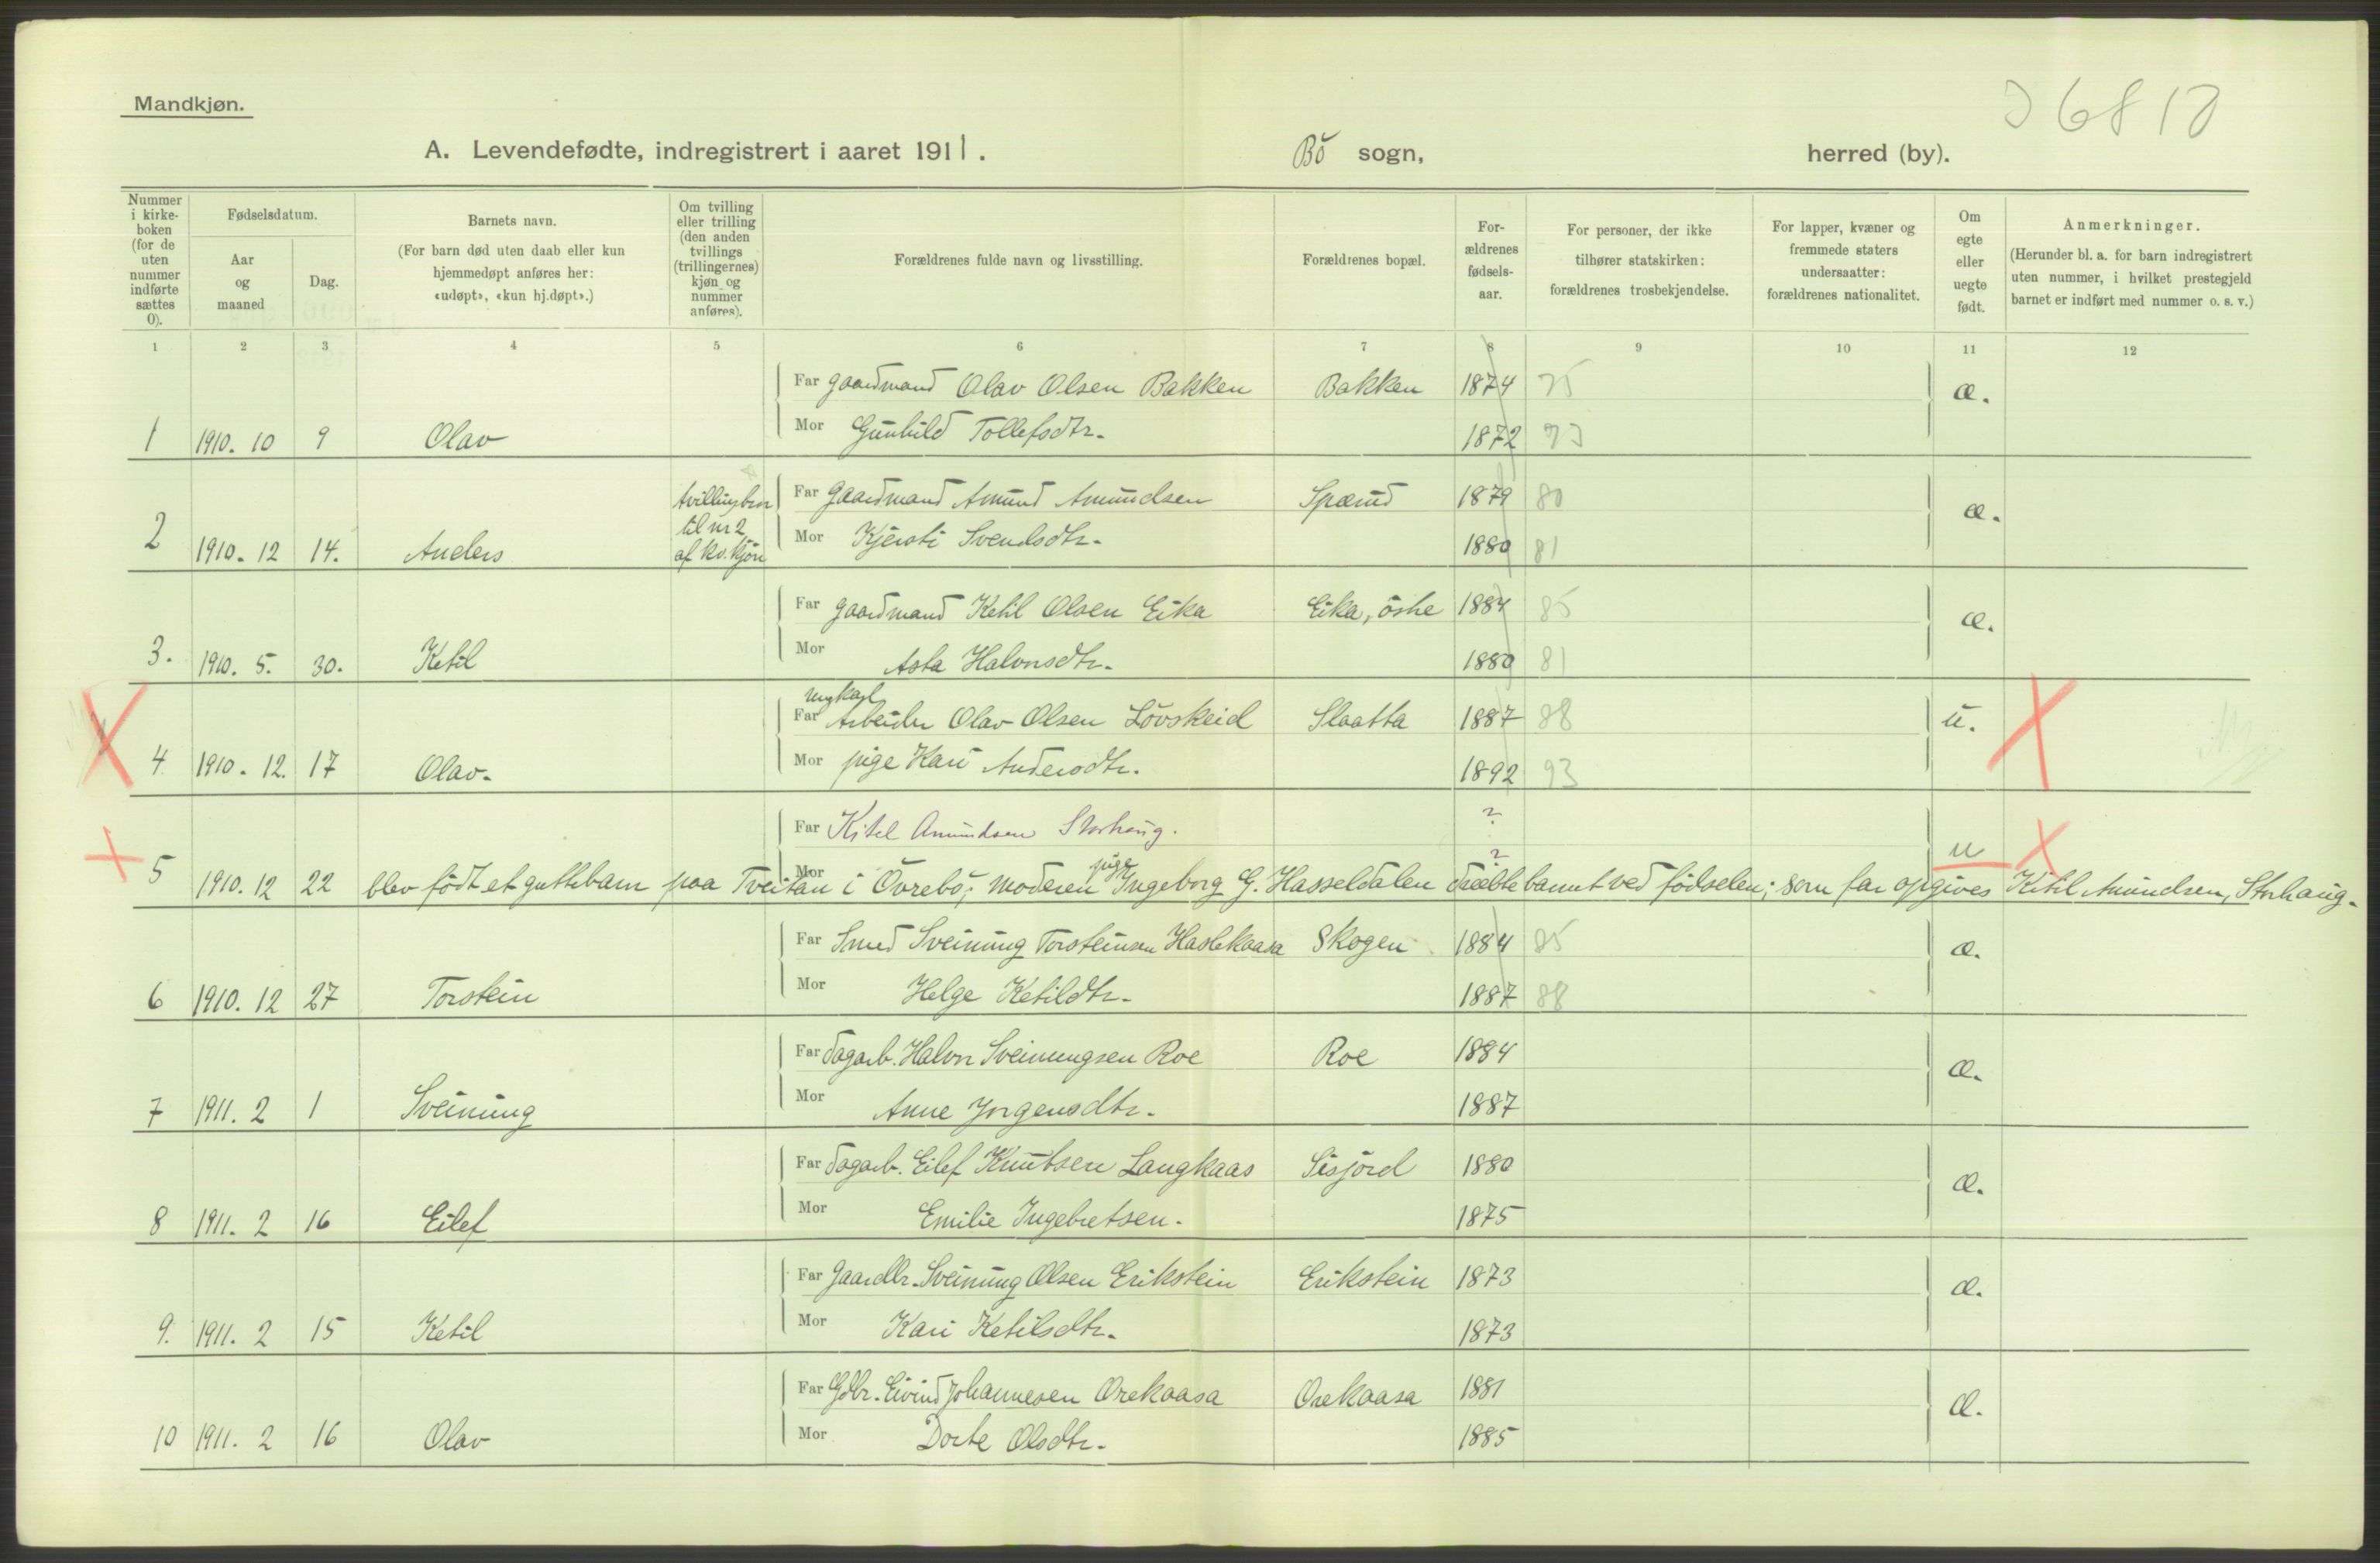 Mandkjøn.
368 10
A. Levendefødte, indregistrert i aaret 1911. Bö sogn, herred (by).
Nummer i kirkeboken (for de uten nummer indførte sættes 0).
Fødselsdatum.
Aar og maaned
Dag.
Barnets navn.
(For barn død uten daab eller kun hjemmedøpt anføres her: «udøpt», «kun hj.døpt».)
Om tvilling eller trilling (den anden tvillings (trillingernes) kjøn og nummer anføres).
Forældrenes fulde navn og livsstilling.
Forældrenes bopæl.
Forældrenes fødselsaar.
For personer, der ikke tilhører statskirken: forældrenes trosbekjendelse.
For lapper, kvæner og fremmede staters undersaatter: forældrenes nationalitet.
Om egte eller uegte født.
Anmerkninger.
(Herunder bl. a. for barn indregistrert uten nummer, i hvilket prestegjeld barnet er indført med nummer o. s. v.)
1 2 3 4 5 6 7 8 9 10 11 12
Far gaardmand Olav Olsen Bakken Bakken 1874 75 æ.
1 1910. 10 9 Olav Mor Gunhild Tollefsdtr. 1872 73
tvillingbror til nr 2 af kv.kjön
Far Gaardmand Amund Amundsen Spærud 1879 80 æ.
2 1910. 12 14. Anders Mor Kjersti Svendsdtr. 1880 81
Far gaardmand Ketil Olsen Eika Eika, östre 1884 85 æ.
3. 1910. 5. 30. Ketil Mor Asta Halvorsdtr. 1880 81
ungkarl
Far Arbeider Olav Olsen Lövskeid Slaatta 1887 88 u.
4 1910. 12. 17 Olav. Mor pige Kari Andersdtr. 1892 93
Far Kitel Amundsen Storhaug. ?
Mor ? u
5 1910. 12 22 blev födt et guttebarn paa Tveitan i Övrebö; moderen pige Ingeborg G. Hasseldalen dræbte barnet ved födselen; som far opgives Kitil Amundsen, Storhaug.
Far Smed Sveinung Torsteinsen Haslekaasa Skogen 1884 85 æ.
6 1910. 12 27 Torstein Mor Helge Ketildtr. 1887 88
Far dagarb. Halvor Sveinungsen Roe Roe 1884 æ.
7 1911. 2 1 Sveinung Mor Anne Jörgensdtr. 1887
Far dagarb. Eilef Knutsen Langkaas Sisjord 1880 æ.
8 1911. 2 16 Eilef Mor Emilie Ingebretsen. 1875
Far Gaardbr. Sveinung Olsen Erikstein Erikstein 1873 æ.
9. 1911. 2 15 Ketil Mor Kari Ketilsdtr. 1873
Far Gdbr. Eivind Johannesen Orekaasa Orekaasa 1881 æ.
10 1911. 2 16 Olav Mor Dorte Olsdtr. 1885